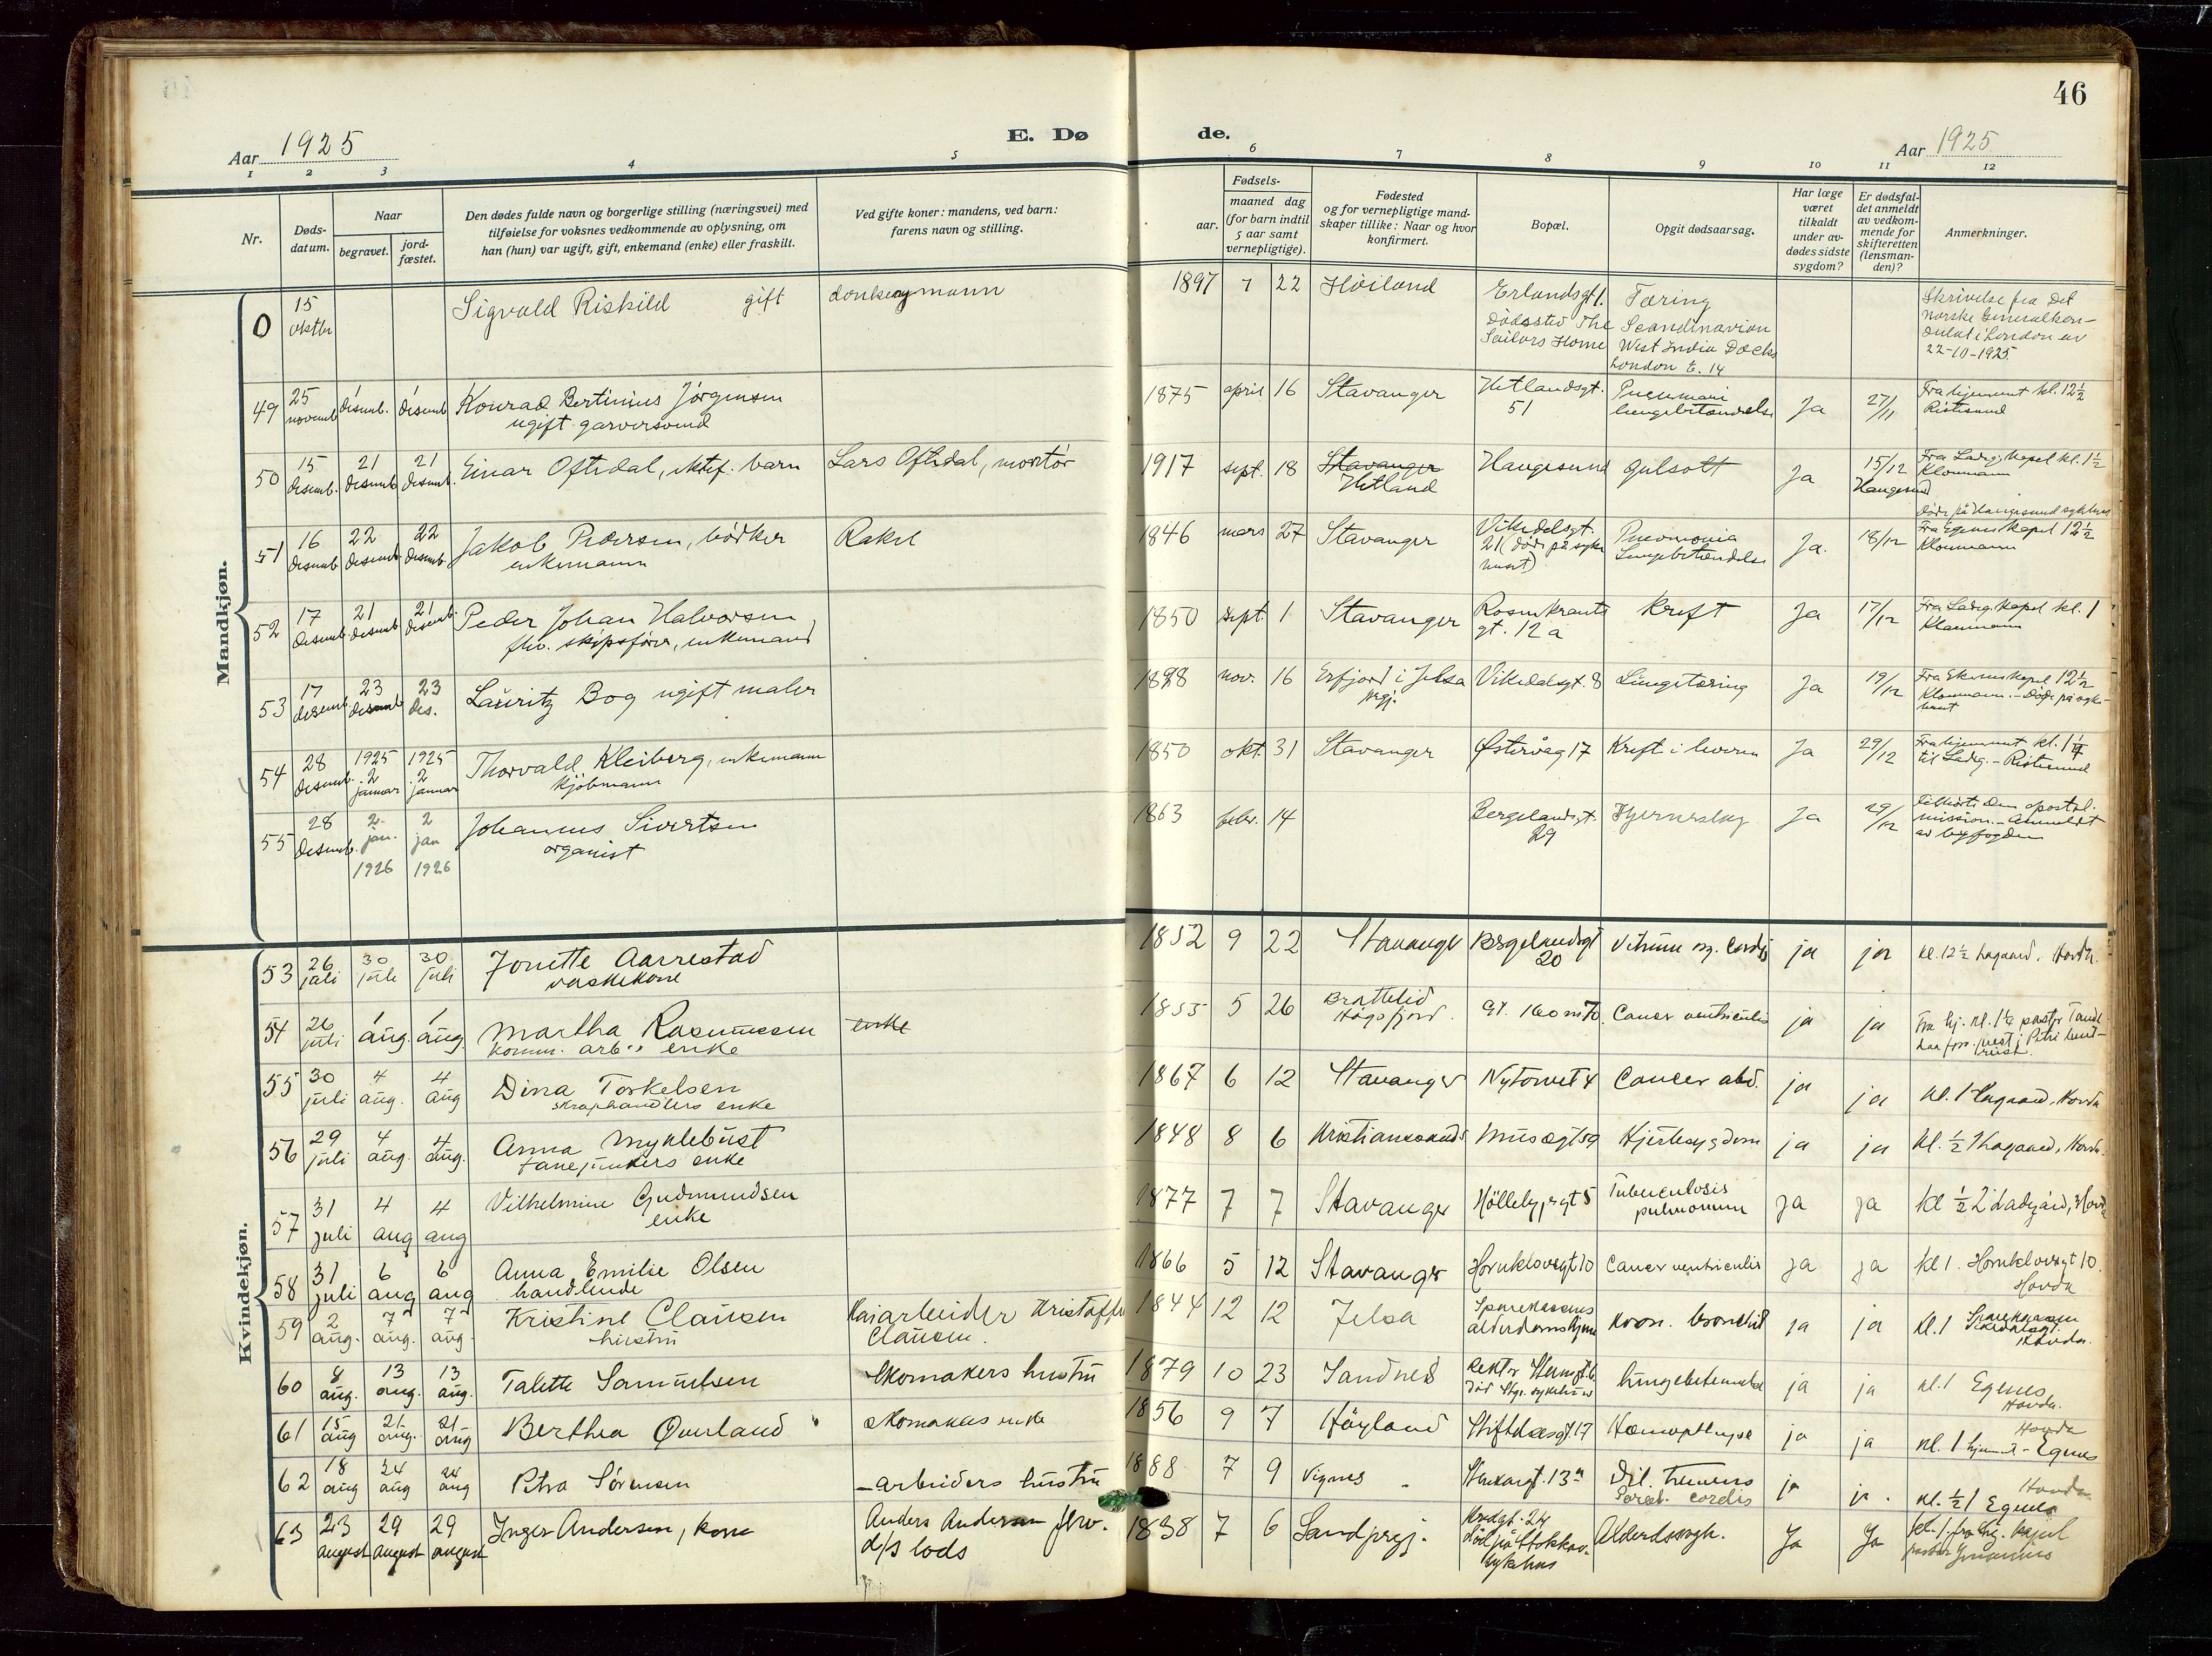 46
Aar 1925
E. Dø
de.
Aar 1925
1 2 3 4 5 6 7 8 9 10 11 12
Nr.
Døds-
datum.
Naar
begravet.
jord-
fæstet.
Den dødes fulde navn og borgerlige stilling (næringsvei) med
tilføielse for voksnes vedkommende av oplysning, om
han (hun) var ugift, gift, enkemand (enke) eller fraskilt.
Ved gifte koner: mandens, ved barn:
farens navn og stilling.
Fødsels-
aar.
maaned dag
(for barn indtil
5 aar samt
vernepligtige).
Fødested
og for vernepligtige mand-
skaper tillike: Naar og hvor
konfirmert.
Bopæl.
Opgit dødsaarsag.
Har læge
været
tilkaldt
under av-
dødes sidste
sygdom?
Er dødsfal-
det anmeldt
av vedkom-
mende for
skifteretten
(lensman-
den)?
Anmerkninger.
Mandkjøn.
0 15 oktbr Sigvald Riskild gift donkeymann 1897 7 22 Høiland Erlandsgt 1. Tæring
Dødssted The Scandinavian
Sailors Home West India Docks
London E. 14
Skrivelse fra Det
norske Generalkon-
sulat i London av
22-10-1925.
49 25 novemb. desemb. desemb. Konrad Bertinius Jörgensen
ugift garversvend
1875 april 16 Stavanger Hetlandsgt. 51 lungebetændelse Ja 27/11 Fra hjemmet kl. 12½
50 15 desemb. 21 desemb. 21 desemb. Einar Oftedal, ektef. barn Lars Oftedal, montör
1917 sept. 18 Stavanger Hetland Haugesund gulsott Ja 15/12 Haugesund Fra Ladeg. kapel kl. 1½
Kloumann
Døde på Haugesund sykehus
51 16 desemb. 22 desemb. 22 desemb. Jakob Pedersen, bödker
enkemann
Rakel
1846 mars 27 Stavanger Vikedalsgt. 21 (döde på sykehuset) Pneumonia
Lungebetændelse Ja. 18/12 Fra Egenes kapel 12½
Kloumann
52 17 desemb. 21 desemb. 21 desemb. Peder Johan Halvorsen
fhv. skipsförer, enkemand
1850 sept. 1 Stavanger Rosenkrants
gt. 12 a Kreft Ja 17/12 Fra Ladeg. kapel kl. 1
Kloumann
53 17 desemb. 23 desemb. 23 des. Lauritz Bog ugift maler
1898 nov. 16 Erfjord i Jelsa
prgj. Vikedalsgt. 8 Lungetæring Ja 19/12 Fra Ekenes kapel 12½
Kloumann. - Döde på syke-
huset
54 28 desemb. 1925 2 januar 1925 2 januar Thorvald Kleiberg, enkemann
kjöbmann
1850 okt. 31 Stavanger Østervåg 17 Kreft i leveren Ja 29/12 Fra hjemmet kl. 1¼
til Ladeg.
55 28 desemb. 2. jan. 1926 2 jan 1926 Johannes Sivertsen
organist
1863 febr. 14 Bergelandsgt. 29 Hjerneslag Ja 29/12 Tilhörte Den apostol.
mission. - Anmeldt
av byfogden
Kvindekjøn.
53 26 juli 30 juli 30 juli Jonette Aarrestad
vaskekone
1852 9 22 Stavanger Bergelandsgt 20 Vitium org. cordis ja ja kl. 12½ Lagaard, Hovda.
54 26 juli 1 aug. 1 aug. Martha Rasmussen
komm. arb.s enke
enke
1855 5 26 Brattelid
Høgsfjord. Cancer ventriculi ja ja Fra hj. kl. 1¼ pastor
55 30 juli 4 aug. 4 aug Dina Torkelsen
skraphandlers enke
1867 6 12 Stavanger Nytorvet 4 Cancer abd. ja ja kl. 1 Lagaard, Hovda
56 29 juli 4 aug. 4 aug. Anna Myklebust
enke
1848 8 6 Kristianssund Musegt 59 Hjertesygdom ja ja kl. ½ 1 Lagaard, Hovda.
57 31 juli 4 aug 4 aug Vilhelmine Gudmundsen
enke
1877 7 7 Stavanger Hölleby gt 5 Tuberculosis
pulmonum ja ja kl ½ 2 Ladegård, Hovda
58 31 juli 6 aug 6 aug Anna Emilie Olsen
handlende
1866 5 12 Stavanger Hornklovesgt 10 Cancer ventriculi ja ja kl 1. Hornklovesgt 10.
Hovda
59 2 aug. 7 aug. 7 aug. Kristine Clausen
hustru
Kaiarbeider Kristoffer
Clausen.
1844 12 12 Jelsa Sparekassens
alderdomshjem kron. bronchit ja ja kl. 1 Sparekassen
Hovda.
60 8 aug. 13 aug. 13 aug. Talette Samuelsen Skomakers hustru
1879 10 23 Sandnes lungebetændelse ja ja kl. 1 Egenes
Hovda.
61 15 aug 21 aug. 21 aug Berthea Øverland skomakers enke
1856 9 7 Höyland Hæmoptyse ja ja kl. 1 hjemmet - Egenes
Hovda
62 18 aug 24 aug 24 aug Petra Sørensen - arbeiders hustru
1888 7 9 Vignes Del. tremens
Paral. cordis ja ja. kl. ½ 1 Egenes
Hovda
63 23 august 29 august 29 august Inger Andersen, kone Anders Andersen fhv.
d/s lods
1838 7 6 Sand prgj. Alderdomssvagh. Ja Ja kl. 1. fra kapel